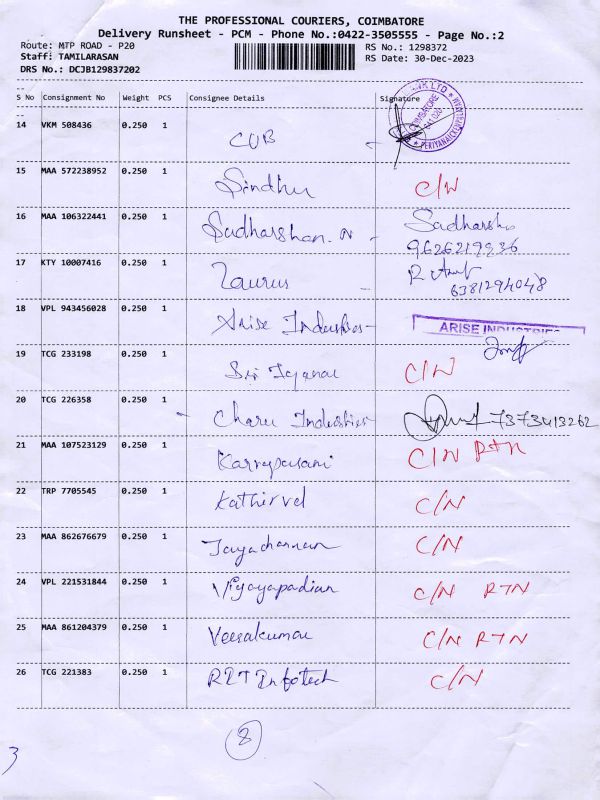 THE PROFESSIONAL COURIERS, COIMBATORE
Delivery Runsheet - PCM - Phone No.:0422-3505555 - Page No.:2
Route: MTP ROAD - P20 RS No.: 1298372
Staff: TAMILARASAN RS Date: 30-Dec-2023
DRS No.: DCJB129837202
S No Consignment No Weight PCS Consignee Details Signature
14 VKM 508436 0.250 1 CUB
15 MAA 572238952 0.250 1 Sindhu C/W
16 MAA 106322441 0.250 1 Sudharshan. N Sadharsh
9626219936
17 KTY 10007416 0.250 1 Zaurus
6381294048
18 VPL 943456028 0.250 1 Arise Industries ARISE INDUSTRIES
19 TCG 233198 0.250 1 Sri C/W
20 TCG 226358 0.250 1 Charu Industries 7373413262
21 MAA 107523129 0.250 1 Karrupasami C/N RTN
22 TRP 7705545 0.250 1 Kathirvel C/N
23 MAA 862676679 0.250 1 C/N
24 VPL 221531844 0.250 1 Vijayapadian C/N RTN
25 MAA 861204379 0.250 1 Veerakumar C/N RTN
26 TCG 221383 0.250 1 Infotech C/N
8
3